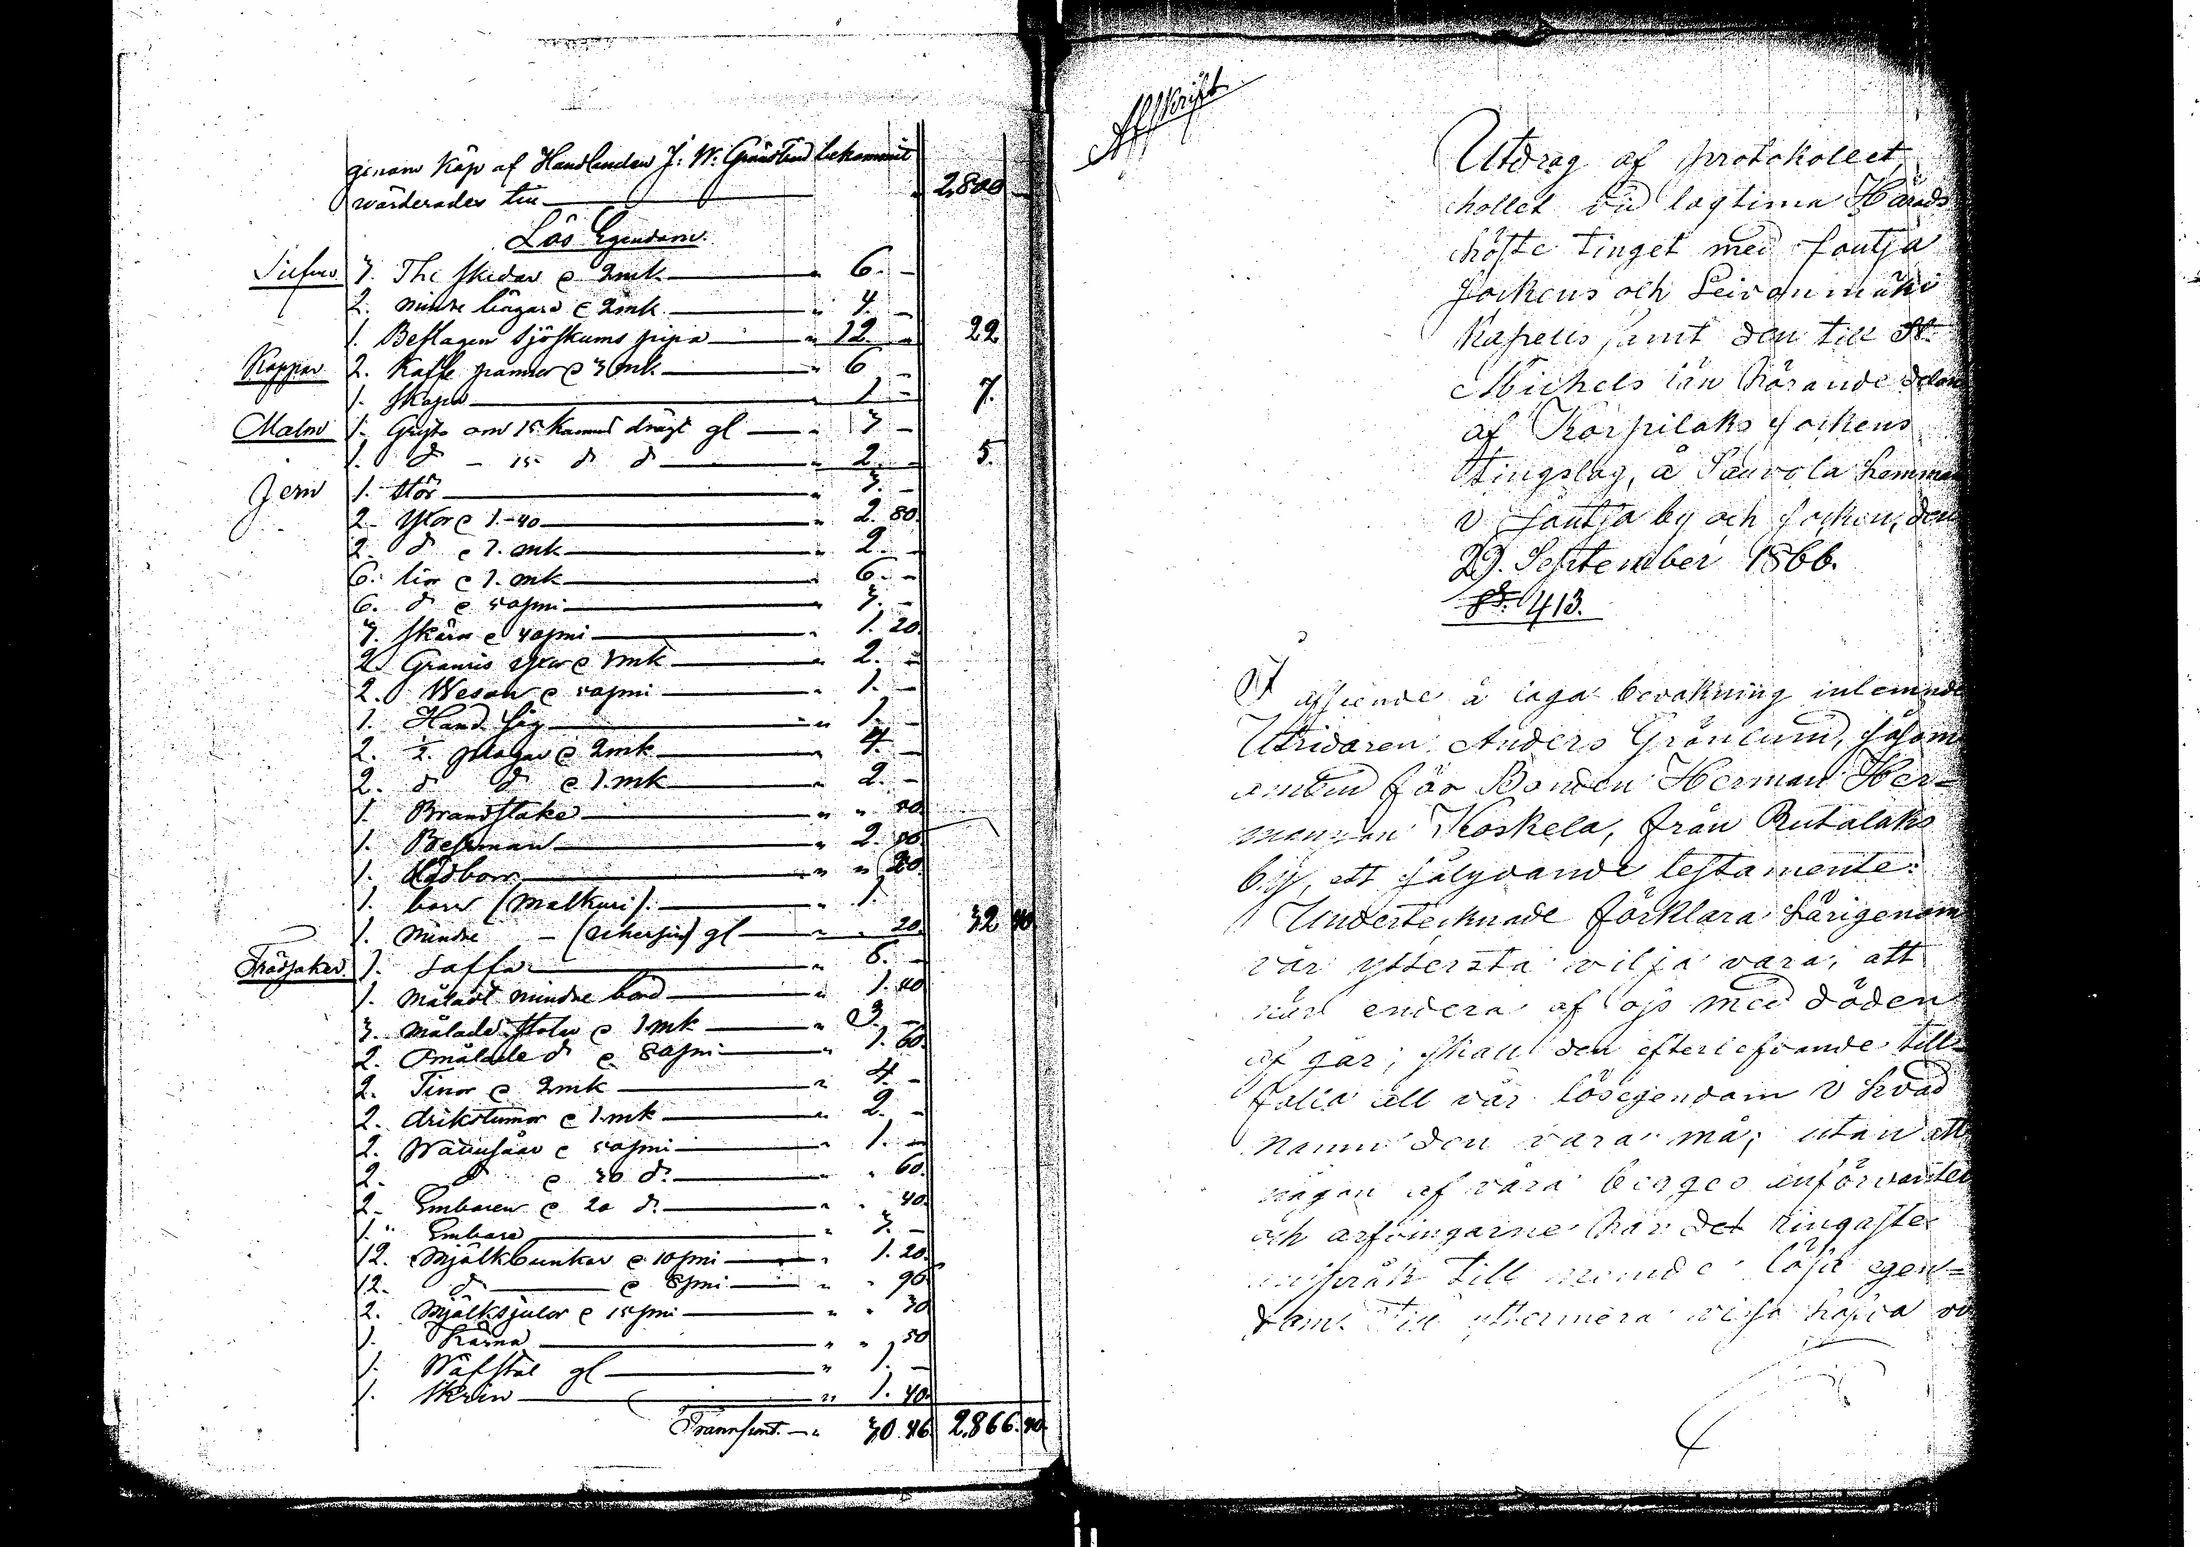 genom Köp af Handlanden J. W. Grönlund bekommit
värderades till 2,800
Lös Egendom.
Silfver 3. The skedar @ 2mk " 6. -
2. mindre @ 2mk " 4. -
1. Beslagen sjöskums pipa " 12 " 22
Koppar 2. Kaffe pannor @ 3 mk " 6 -
1. skopa " 1 - 7.
Malm 1. Gryta om 15 Kannors drägt gl " 3 -
1. d - 15 d d " 2. - 5.
Jern 1. Stör " 3. -
2. Yxor @ 1.-40 " 2. 80.
2. d @ 1. mk " 2. -
6. liar @ 1. mk " 6. -
6. d @ 50pni " 3. -
3. skäror @ 40pni " 1. 20.
2. Granris yxor @ 1mk " 2. -
2. Wesan @ 50pni " 1. -
1. Hand såg " 1. -
2. plogar @ 2mk " 4. -
2. d d @ 1.mk " 2. -
1. Brandstake " "
1. Besman " 2.
1. " " 20
1. borr (Malkuri). " 1.
1. mindre - gl " " 20. 32 40
Trädsaker 1. Saffa " 6. -
1. måladt mindre bord " 1. 40
3. målade stolar @ 1mk " 3. -
2. Omålade d @ 80pni " 1. 60.
2. Tinor @ 2mk " 4. -
2. drikstunnor @ 1.mk " 2. -
2. Wattusåar @ 50pni " 1. -
2. d @ 30 d. " " 60.
2. Embaren @ 20 d. " " 40.
1. " Embare " 3. -
12. Mjölkbunkar @ 10pni " 1. 20.
12. d @ 8pni " " 96
2. Mjölksjulor @ 15pni " " 30
1. Kärna " " 50
1. Wäfstol gl " 1. -
1. Skrin " 1. 40.
Transport. " 30. 46. 2,866. 40.
Afskrift
Utdrag af protokollet,
hållet vid lagtima Härads
höfte Tinget med Joutsa
Sockens och Leivonmäki
Kapells samt den till St.
Michels län hörande delen
af Korpilaks sockens
Tingslag, å Sauvola hemman
i Joutsa by och socken, den
29. September 1866.
§ 413.
I afseende å laga bevakning inlemnade
Utridaren Anders Grönlund, såsom
ombud för Bonden Herman Her=
mansson Koskela, från Rutalaks
by, ett sålydande testamente:
Undertecknade förklara härigenom
vår yttersta vilja vara, att
när endera af oss med döden
af går, skall den efterlefvande till=
falla all vår lösegendom i hvad
namn den vara må; utan att
någon af våra begges anförvanter
och arfvingarne har det ringaste
anspråk till nämnde lösa egen=
dom. Till yttermera visso hafva vi